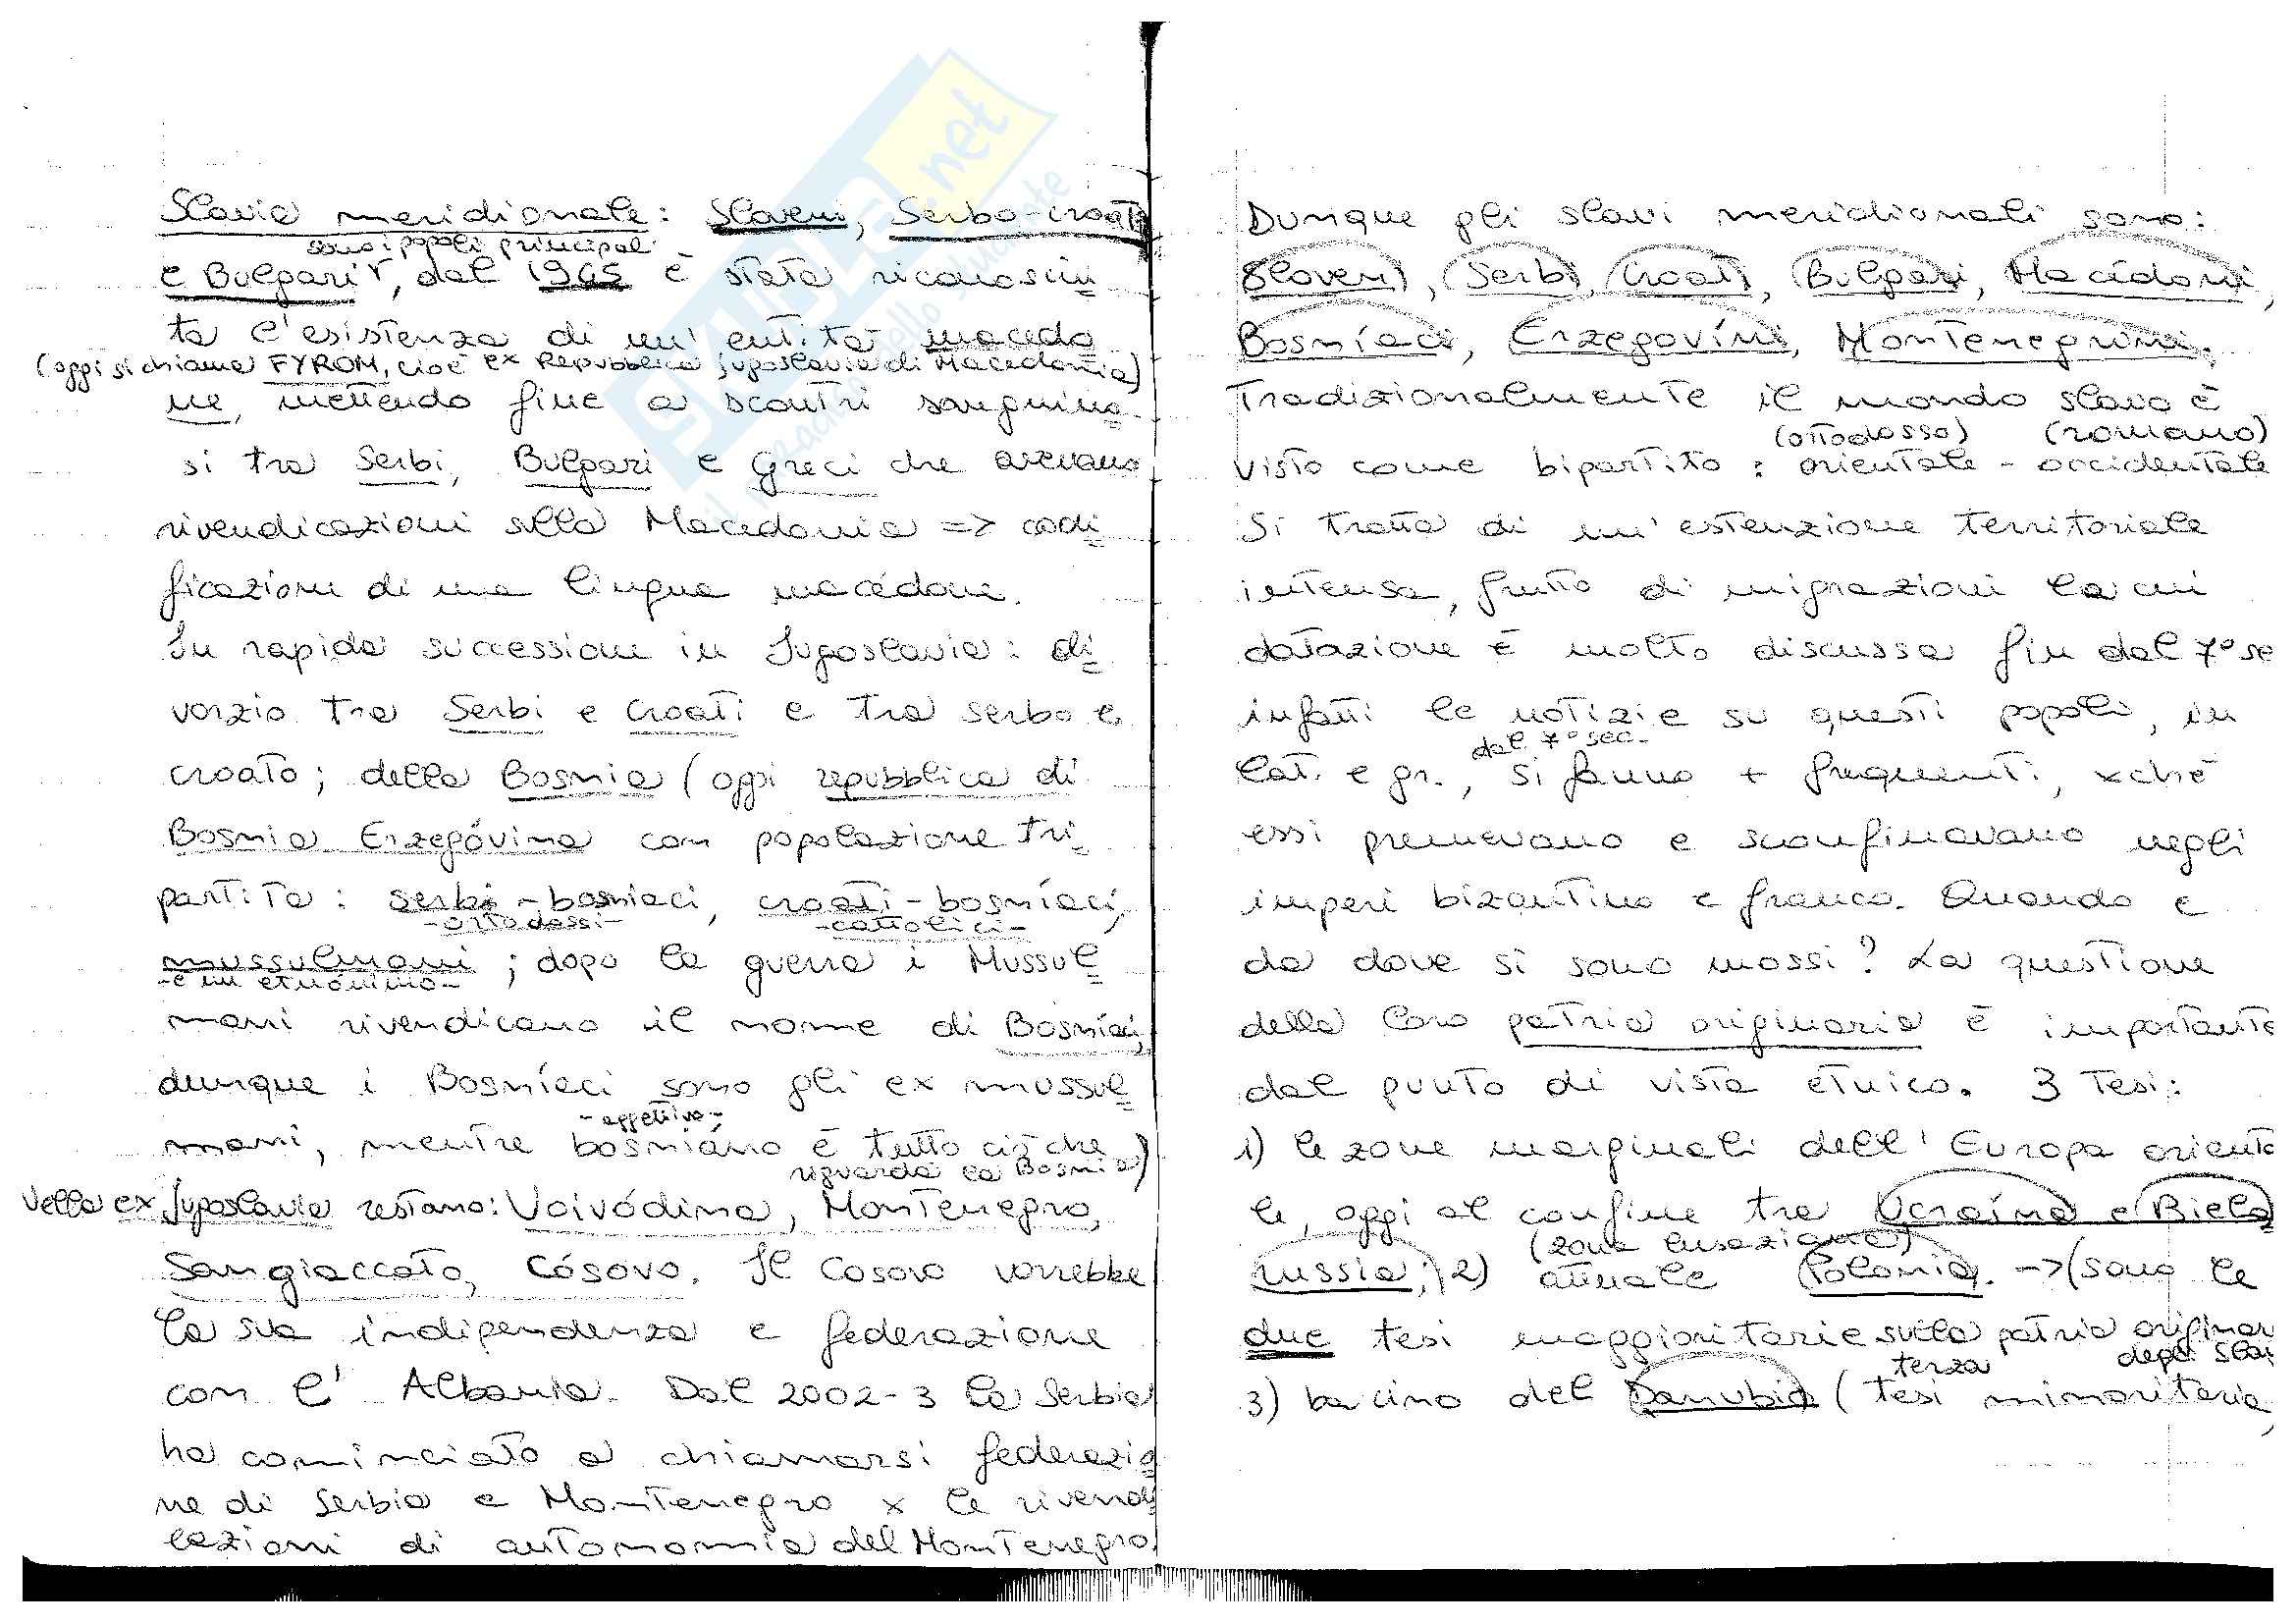 Slavia meridionale: Sloveni, Serbo-croati
sono i popoli principali
e Bulgari, dal 1945 è stata riconosciu
ta l'esistenza di un'entità macedo
(oggi si chiama FYROM, cioè ex Repubblica jugoslavia di Macedonia)
ne, mettendo fine a scontri sanguino
si tra Serbi, Bulgari e Greci che avevano
rivendicazioni sulla Macedonia => codi
ficazione di una lingua macédone.
In rapida successione in Jugoslavia: di
vorzio tra Serbi e croati e tra serbo e
croato; della Bosnia (oggi repubblica di
Bosnia Erzegóvina con popolazione tri
partita: serbi-bosniaci, croati-bosníaci,
-ortodossi- -cattolici-
mussulmani; dopo la guerra i Mussul
-è un etnónimo-
mani rivendicano il nome di Bosníaci,
dunque i Bosníaci sono gli ex mussul
-aggettivo-
mani, mentre bosniáno è tutto ciò che
riguarda la Bosnia)
Nella ex Jugoslavia restano: Voivódina, Montenegro,
Sangiaccato, Cósovo. Il Cosovo vorrebbe
la sua indipendenza e federazione
con l' Albania. Dal 2002-3 la Serbia
ha cominciato a chiamarsi federazio
ne di Serbia e Montenegro x le rivendi
cazioni di autonomia del Montenegro.
Dunque gli slavi meridionali sono:
Sloveni, Serbi, Croati, Bulgari, Macédoni,
Bosníaci, Erzegovíni, Montenegrini.
Tradizionalmente il mondo slavo è
(ortodosso) (romano)
visto come bipartito: orientale - occidentale
Si tratta di un'estenzione territoriale
intensa, frutto di migrazioni la cui
datazione è molto discussa fin dal 7° se
infatti le notizie su questi popoli, in
dal 7° sec.
lat. e gr., si fanno + frequenti, xchè
essi premevano e sconfinavano negli
imperi bizantino e franco. Quando e
da dove si sono mossi? La questione
della loro patria originaria è importante
dal punto di vista etnico. 3 Tesi:
1) le zone marginali dell' Europa orienta
le, oggi al confine tra Ucraína e Bielo
(zona lusaziana)
russia; 2) attuale Polonia. ->(sono le
due tesi maggioritarie sulla patria originar
terza degli slavi
3) bacino del Danubio (tesi minoritaria,